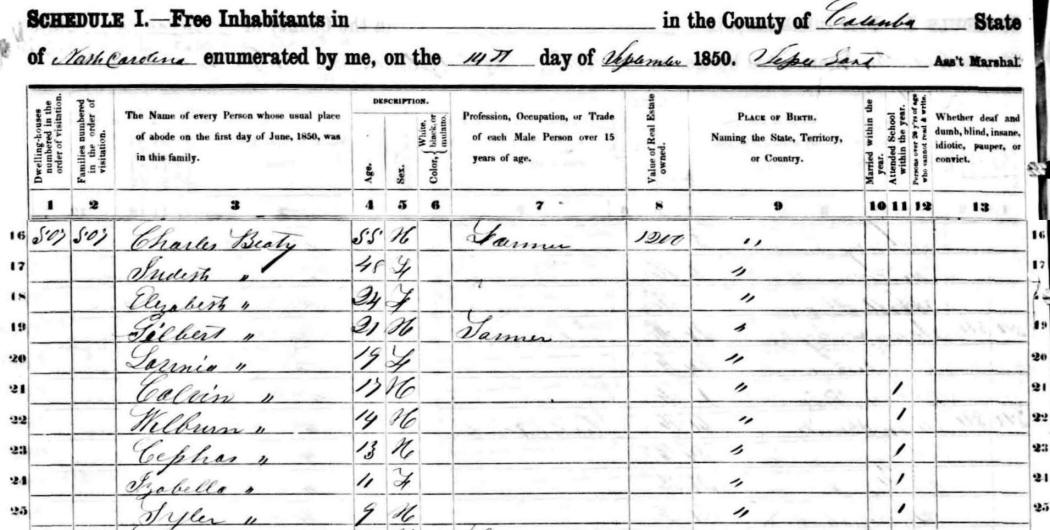 SCHEDULE I.—Free Inhabitants in in the County of Catawba State
of North Carolina enumerated by me, on the 14th day of September 1850. Ass't Marshal.
DESCRIPTION.
Dwelling-houses numbered in the order of visitation.
Families numbered in the order of visitation.
The Name of every Person whose usual place of abode on the first day of June, 1850, was in this family.
Age.
Sex.
Color, White, black, or mulatto.
Profession, Occupation, or Trade of each Male Person over 15 years of age.
Value of Real Estate owned.
PLACE OF BIRTH. Naming the State, Territory, or Country.
Married within the year.
Attended School within the year.
Persons over 20 y'rs of age who cannot read & write.
Whether deaf and dumb, blind, insane, idiotic, pauper, or convict.
1 2 3 4 5 6 7 8 9 10 11 12 13
16 507 507 Charles Beaty 55 M Farmer 1200 " 16
17 Judith " 48 F " 17
18 Elizabeth " 24 F "
19 Gilbert " 21 M Farmer " 19
20 " 19 F " 20
21 Calvin " 17 M " 1 21
22 Wilburn " 14 M " 1 22
23 Cephas " 13 M " 1 23
24 Izabella " 11 F " 1 24
25 Tyler " 9 M " 1 25